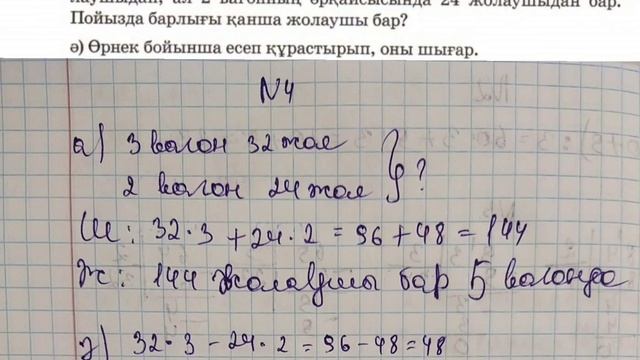 лаушыдан, ал 2 вагонның әрқайсысында 24 жолаушыдан бар.
Пойызда барлығы қанша жолаушы бар?
ә) Өрнек бойынша есеп құрастырып, оны шығар.
N4
а) 3 вагон 32 жол
2 вагон 24 жол } ?
Ш: 32·3 + 24·2 = 96 + 48 = 144
Ж: 144 жолаушы бар 5 вагонда
ә) 32·3 - 24·2 = 96 - 48 = 48